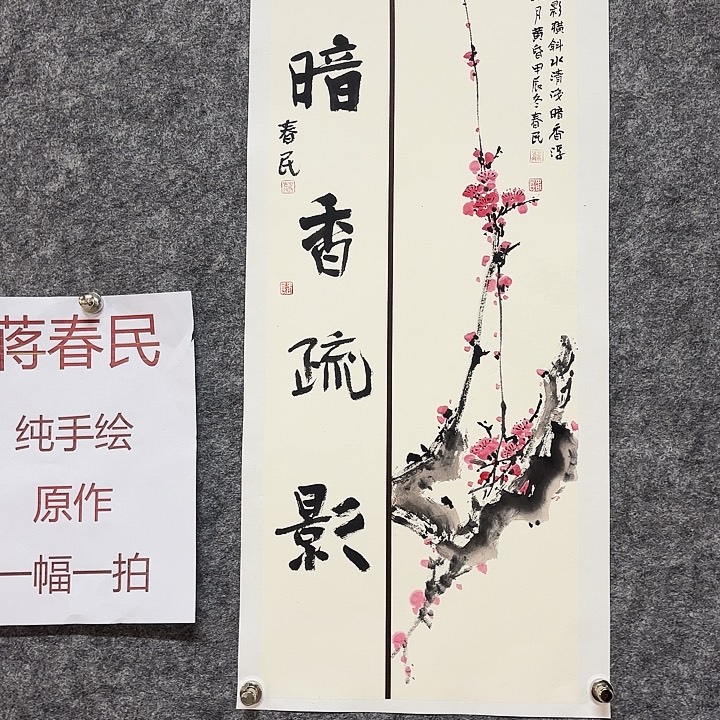 蒋春民
纯手绘
原作
一幅一拍
暗香疏影
春民
影横斜水清浅暗香浮
月黄昏甲辰冬春民